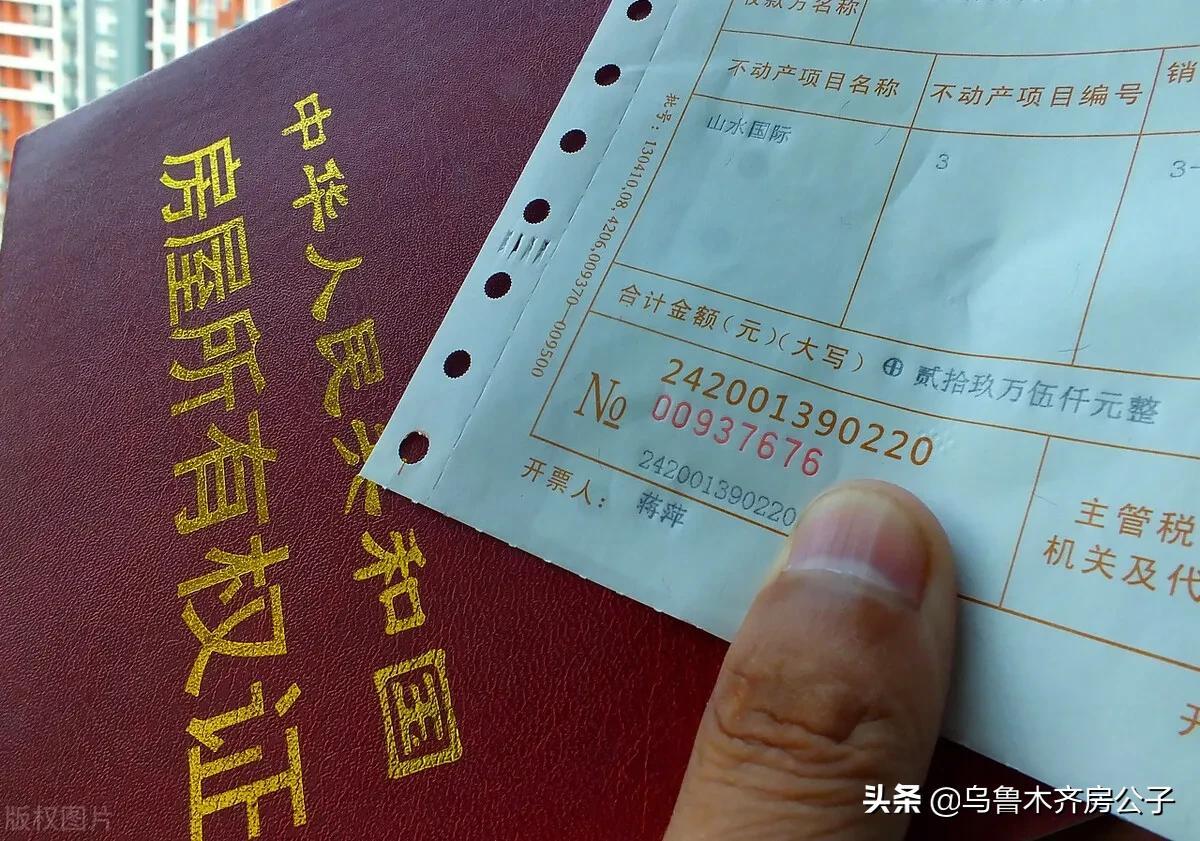 中华人民共和国
房屋所有权证
收款方名称
不动产项目名称
不动产项目编号
销
山水国际
3
3-
批号：130410.08.4206.009370—009500
合计金额(元)(大写) ⊕ 贰拾玖万伍仟元整
242001390220
№ 00937676
242001390220
开票人： 蒋萍
主管税
机关及代
开
版权图片
头条 @乌鲁木齐房公子